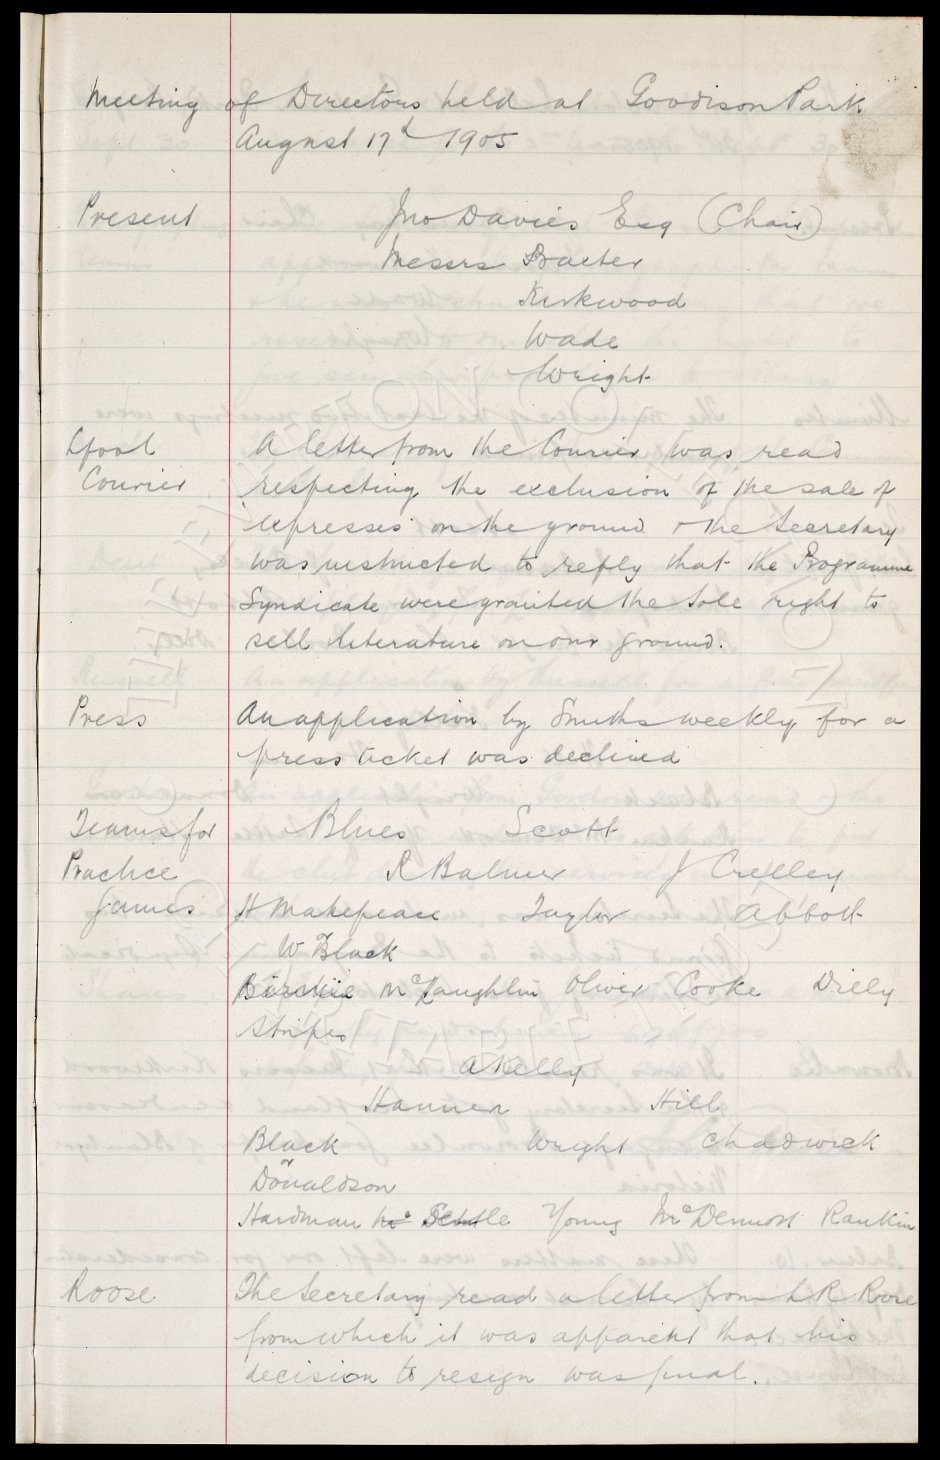 Meeting of Directors held at Goodison Park
August 17th 1905
Present Jno Davies Esq (Chair)
Messrs Baxter
Kirkwood
Wade
Wright
Lpool A letter from the Courier was read
Courier respecting the exclusion of the sale of
expresses on the ground & the Secretary
was instructed to reply that the Programme
Syndicate were granted the sole right to
sell literature on our ground.
Press An application by Smiths weekly for a
press ticket was declined
Teams for Blues Scott
Practice R Balmer J Crelley
Games H Makepeace Taylor Abbott
or
W Black
Birchie McLaughlin Oliver Cooke Dilly
Stripes
A Kelly
Hanner Hill
Black Wright Chadwick
or
Donaldson
Hardman Settle Young McDermott Rankin
Roose The Secretary read a letter from L R Roose
from which it was apparent that his
decision to resign was final.